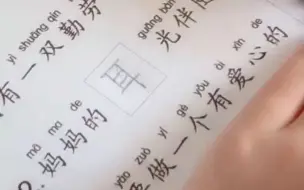 yì shuāng qín
有一双勤劳
mā ma de guāng bàn
妈妈的 光伴
yào zuò yí gè yǒu ài xīn de
要做一个有爱心的